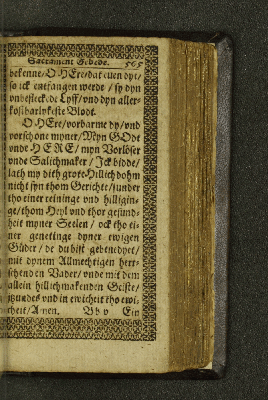 Sacrament Gebede. 565
bekenne/ O HEre/ dat euen dyt/
so ick entfangen werde / sy dyn
vnbeflecfede Lyff/ vnd dyn aller-
kostbarlykeste Blodt.
O HEre/ vorbarme dy/ vnd
vorschone myner/ Myn GOdt
vnde HERE/ myn Vorlöser
vnde Salichmaker / Jck bidde/
lath my dith grote Hillichdohm
nicht syn thom Gerichte/ sunder
tho einer reininge vnd hilligin-
ge/ thom Heyl vnd thor gesundt-
heit myner Seelen / ock tho ei-
ner genetinge dyner ewigen
Güder / de du bist gebenedyet/
mit dynem Allmechtigen herr-
schenden Vader/ vnde mit dem
allein hillichmakenden Geiste/
ytzundes vnd in ewicheit tho ewi-
cheit/ Amen. Bb v Ein